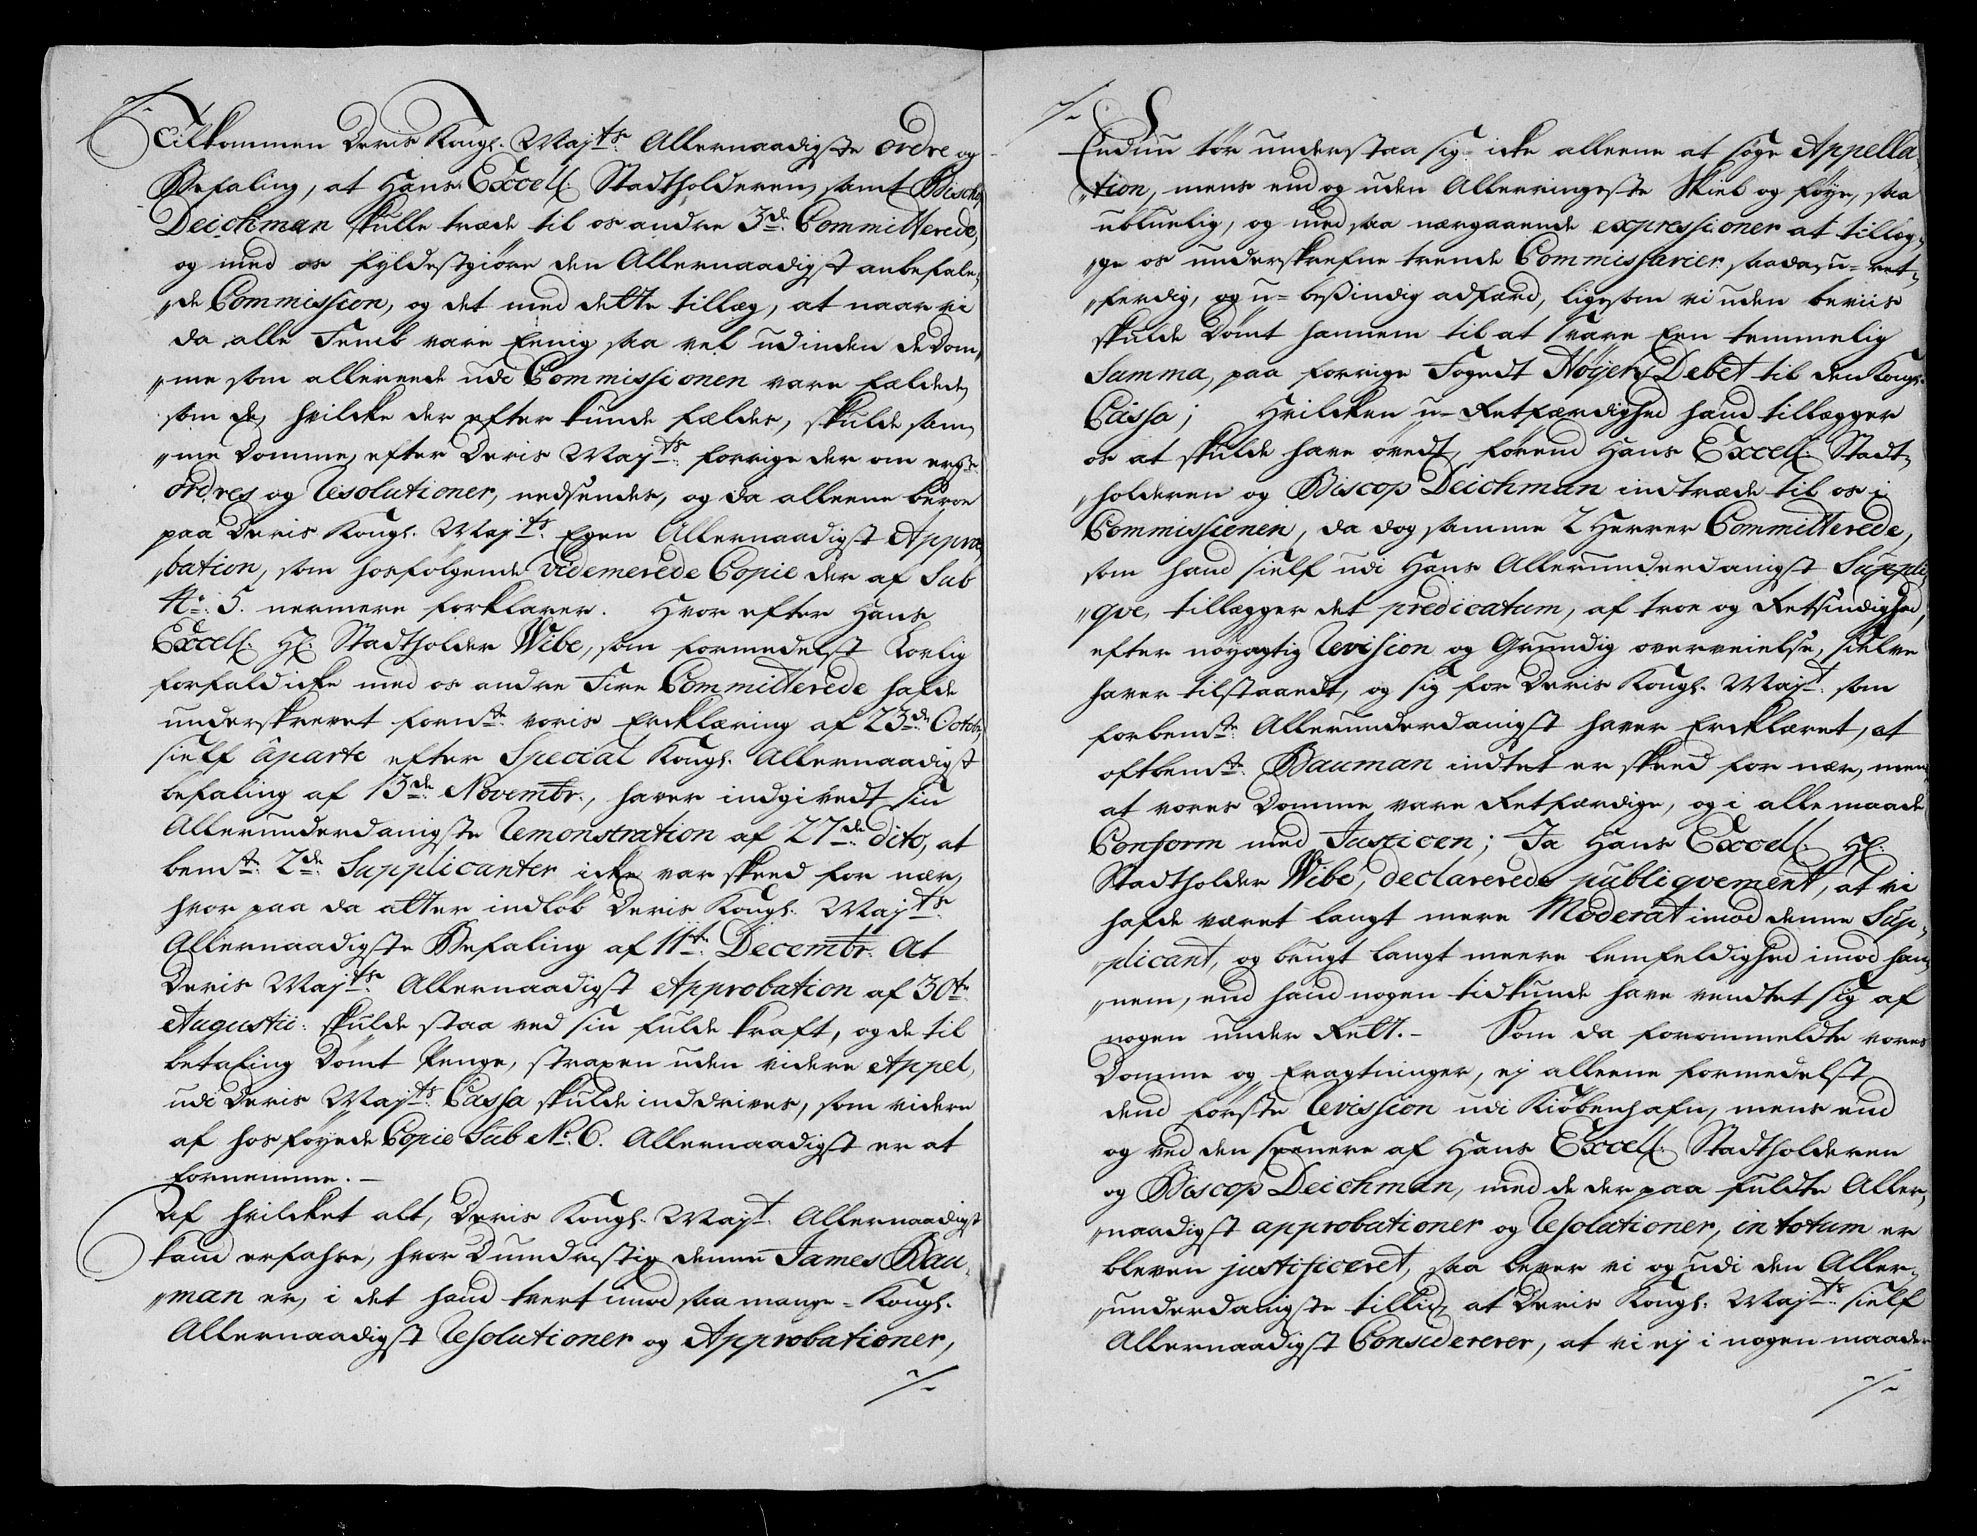 Tilkommen Deris Kongl. Maj:ts Allernaadigste ordre og
Befaling, at Hans Excell. Stadtholderen, samt Biscop
Deichman skulle træde til os andre 3de Committerede,
og med os fyldestgiøre den Allernaadigst anbefale,
"de Commission, og det med dette tillæg, at naar vi
da alle Femb vare Eenig saa vel udinden de Dom,
"me som allereede udi Commissionen vare fældede,
som de, hvilcke der efter kunde fældes, skulde sam,
"me Domme, efter Deris Maj:ts forrige der om
ordres og Resolutioner, nedsendes, og da alleene beroe
paa Deris Kongl. Maj:ts Egen Allernaadigst Appro,
"bation, som hosfølgende Videmerede Copie der af Sub
N: 5. nermere forklarer. Hvor efter Hans
Excell. Hr. Stadtholder Wibe, som formedelst Lovlig
forfald icke med os andre Fire Committerede hafde
underskrevet fornte voris Ercklæring af 23de Octobr
sielf aparte efter Special Kongl. Allernaadigst
befaling af 13de Novembr., haver indgivedt sin
Allerunderdanigste Remonstration af 27de dito, at
bemte 2de Supplicanter icke var skeed for nær,
hvor paa da atter indløb Deris Kongl. Maj:ts
Allernaadigste Befaling af 11te Decembr. At
Deris Maj:ts Allernaadigst Approbation af 30te
Augustii skulde staa ved sin fulde kraft, og de til
betaling Dømt Penge, straxen uden videre Appel,
udi Deris Maj:ts Cassa skulde inddrives, som videre
af hosføyede Copie Sub N: 6. Allernaadigst er at
fornemme. –
Af hvilcket alt, Deris Kongl. Maj:t Allernaadigst
kand erfahre, hvor Dumdristig denne James Bau,
"man er, i det hand tvert imod saa mange Kongl.
Allernaadigst Resolutioner og Approbationer,
./.
./.
Endnu tør understaa sig icke alleene at søge Appella,
"tion, mens end og uden Allerringeste Skiel og føye, saa
ubluelig, og med saa nærgaaende expressioner at tillæg,
"ge os underskrefne trende Commissarier saadan u-ret,
"ferdig, og u-beßindig adfærd, ligesom vi uden beviis
skulde Dømt hannem til at svare Een temmelig
Summa, paa forrige Fogedt Höyers Debet til den Kongl.
Cassa; Hvilcken u-Retfærdighed hand tillægger
os at skulde have øvedt, førend Hans Excell. Stadt,
"holderen og Biscop Deichman indtræde til os i
Commissionen, da dog samme 2 Herrer Committerede,
som hand sielf udi Hans Allerunderdanigst Suppli,
"qve, tillægger det predicatum, af troe og Retsindighed,
efter nöyagtig Revision og Grundig overveielse, sielve
haver tilstaaedt, og sig for Deris Kongl. Maj:t som
forbemte Allerunderdanigst haver Ercklæret, at
oftbemte Bauman indtet er skeed for nær, men
at vores Domme vare Retfærdige, og i alle maade
Conform med Justicen; Ja Hans Excell. Hr.
Stadtholder Wibe, declarerede publiqvement, at vi
hafde været langt mere Moderat imod denne Sup,
"plicant, og brugt langt meere lemfeldighed imod han,
"nem, end hand nogen tid kunde have vendtet sig af
nogen under Rett. – Som da forommeldte vores
Domme og Eragtninger, ej alleene formedelst
dend første Revission udi Kiöbenhafn, mens end
og ved den seenere af Hans Excell. Stadtholderen
og Biscop Deichman, med de der paa fuldte Aller,
"naadigst approbationer og Resolutioner, in totum er
bleven justificeret, saa lever vi og udi den Aller,
"underdanigste tillid, at Deris Kongl. Maj:ts sielf
Allernaadigst Considererer, at vi ej i nogen maader
./.